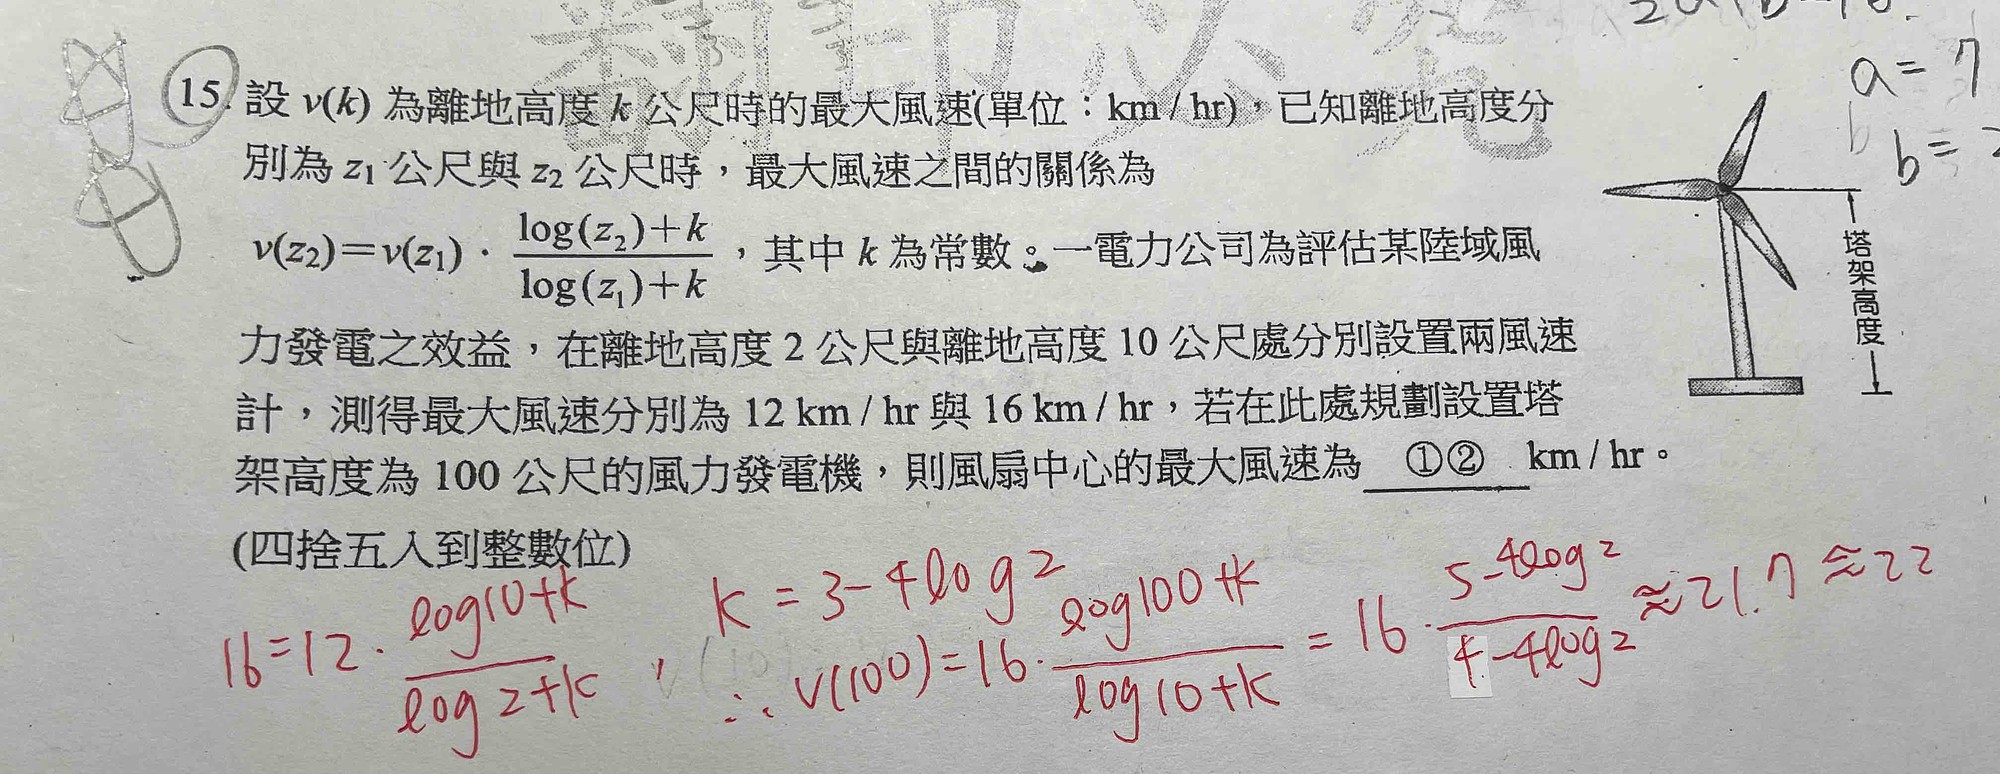 翻印必究
a=7
b
15. 設 v(k) 為離地高度 k 公尺時的最大風速(單位：km / hr)，已知離地高度分
b=
別為 z₁ 公尺與 z₂ 公尺時，最大風速之間的關係為
v(z₂)=v(z₁)·(log(z₂)+k)/(log(z₁)+k)，其中 k 為常數。一電力公司為評估某陸域風
力發電之效益，在離地高度 2 公尺與離地高度 10 公尺處分別設置兩風速
計，測得最大風速分別為 12 km / hr 與 16 km / hr，若在此處規劃設置塔
架高度為 100 公尺的風力發電機，則風扇中心的最大風速為 ①② km / hr。
(四捨五入到整數位)
塔架高度
16=12·(log10+k)/(log2+k)，k=3-4log2
∴v(100)=16·(log100+k)/(log10+k)=16·(5-4log2)/(4-4log2)≈21.7≈22